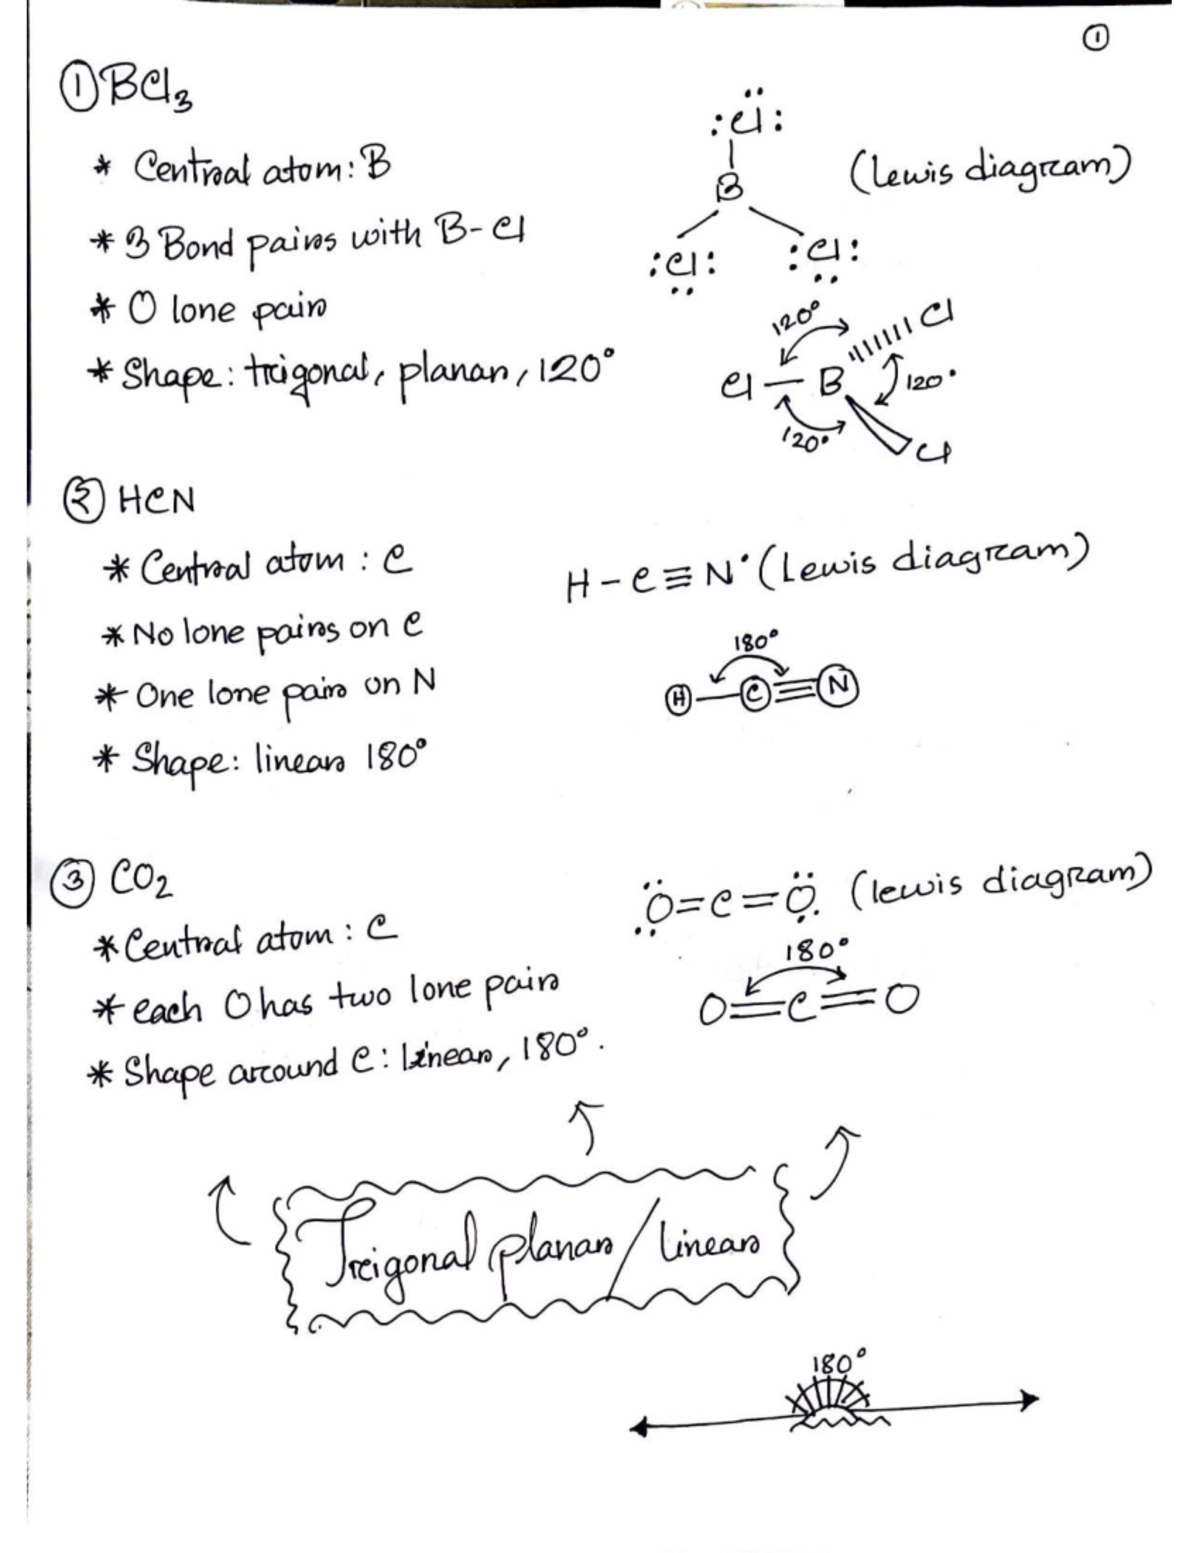 ①
① BCl3
* Central atom: B
* 3 Bond pairs with B-Cl
* 0 lone pair
* Shape: trigonal, planar, 120°
:Cl:
B
:Cl: :Cl:
(Lewis diagram)
120°
Cl
Cl - B
120°
120°
Cl
② HCN
* Central atom: C
* No lone pairs on C
* One lone pair on N
* Shape: linear 180°
H-C≡N· (Lewis diagram)
180°
H C N
③ CO2
* Central atom: C
* each O has two lone pair
* Shape around C: linear, 180°.
O=C=O (lewis diagram)
180°
O=C=O
Trigonal planar/linear
180°